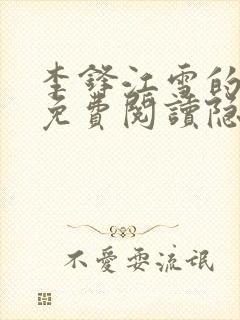 李鋒江雪的
免費閱讀隐
不愛耍流氓